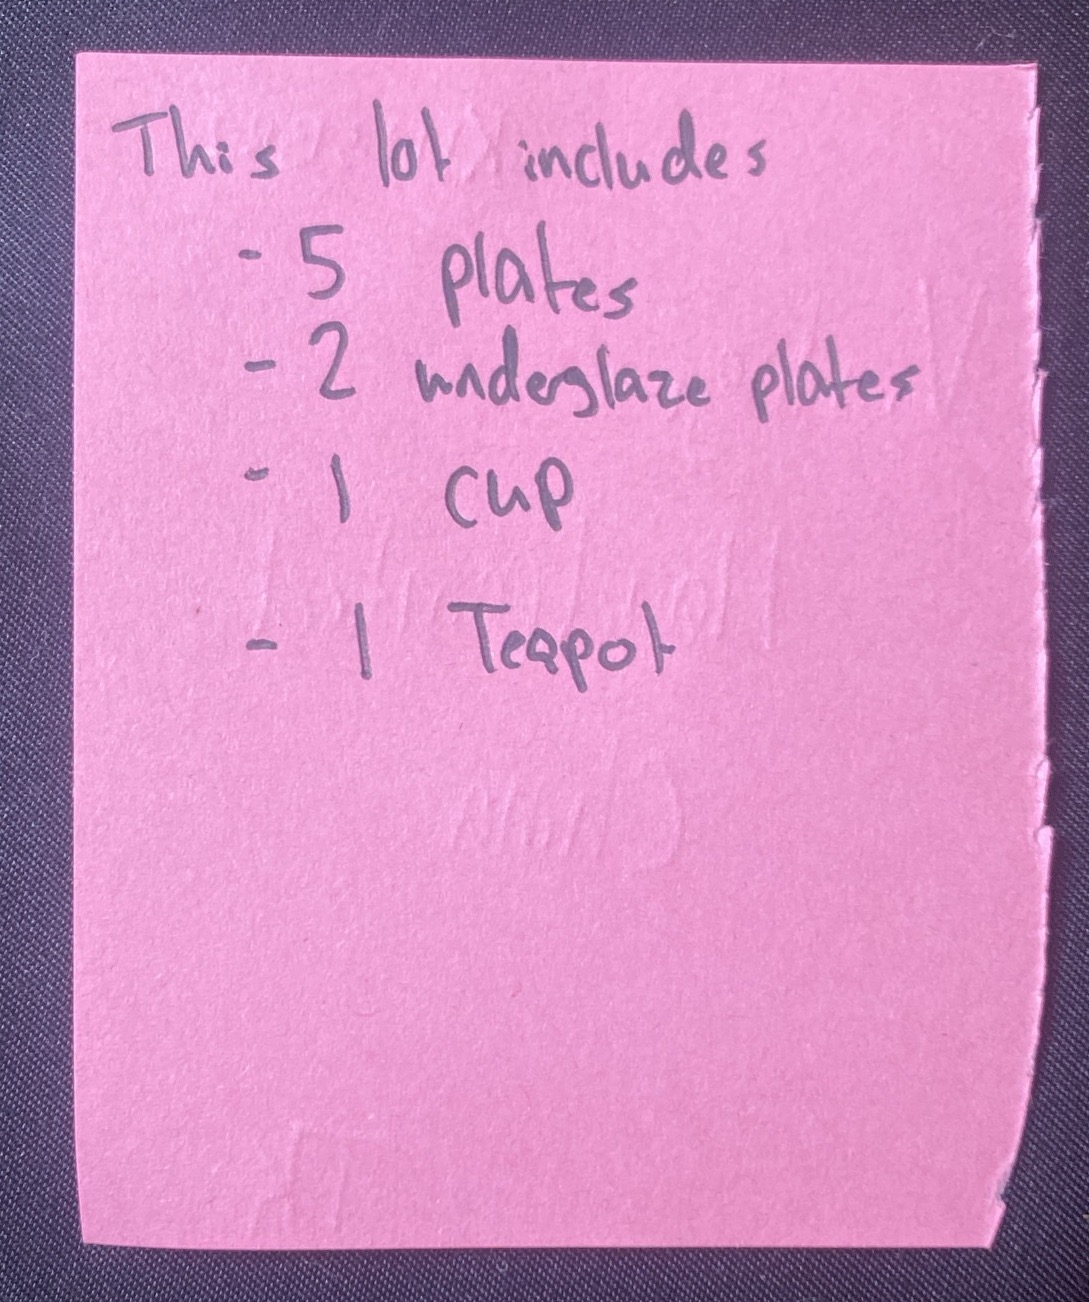 This lot includes
- 5 plates
- 2 underglaze plates
- 1 cup
- 1 Teapot